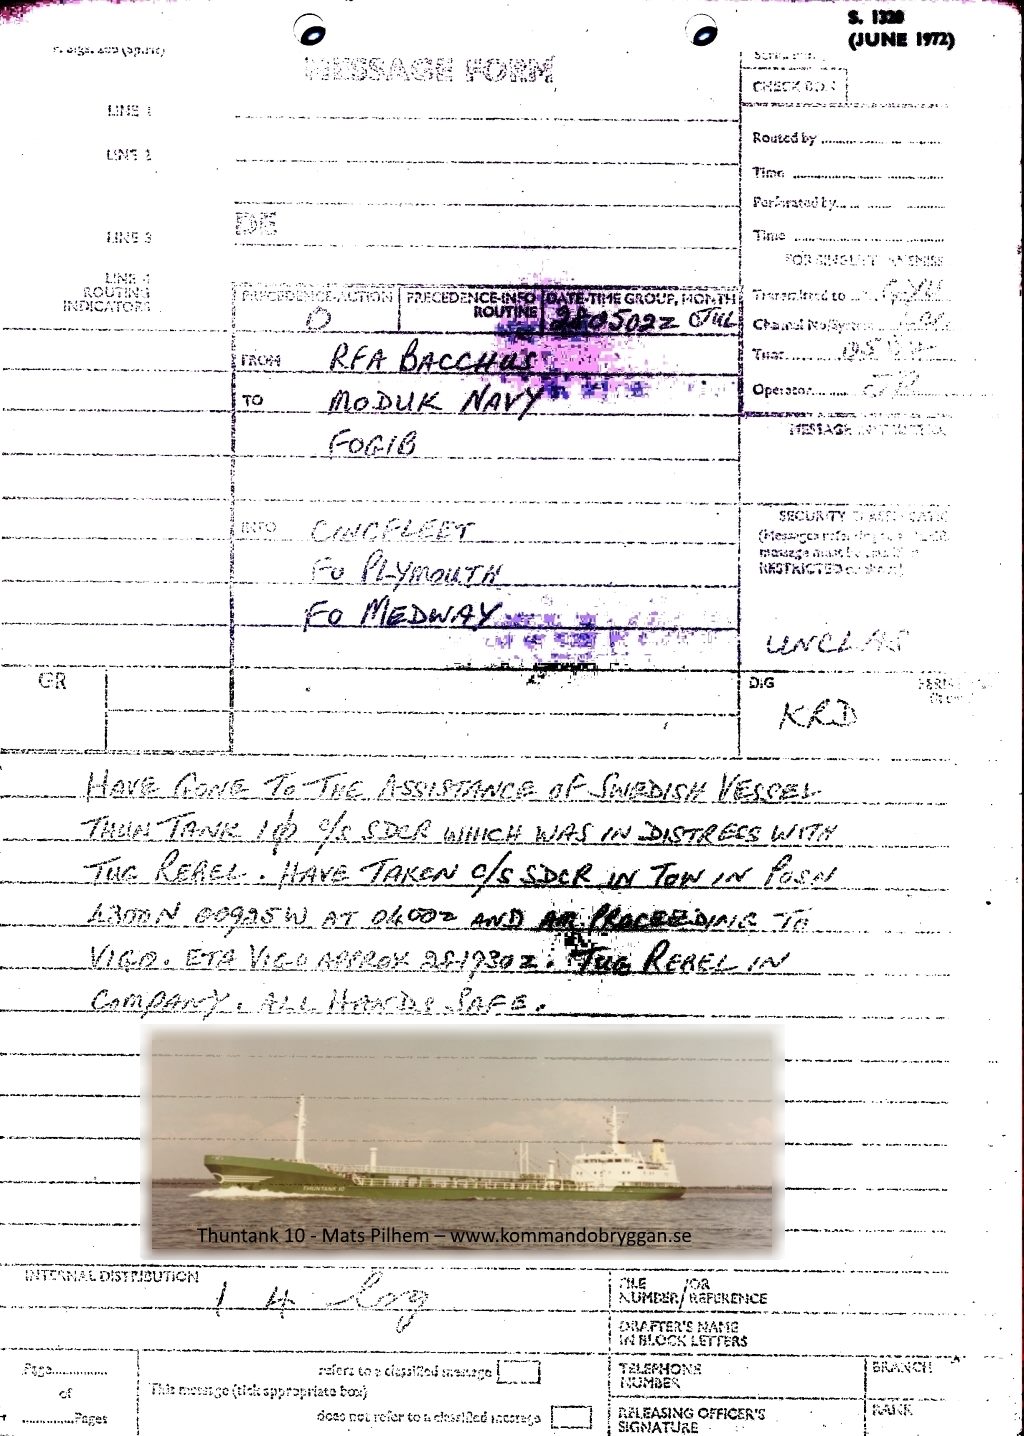 S. 1320
(JUNE 1972)
MESSAGE FORM
LINE 1
LINE 2
LINE 3
LINE 4
ROUTING
INDICATORS
DE
CHECK
Routed by
Time
Perforated by
Time
Transmitted to
Channel No/System
Time
Operator
PRECEDENCE-ACTION
O
PRECEDENCE-INFO
ROUTINE
DATE-TIME GROUP, MONTH
280502Z JUL
FROM RFA BACCHUS
TO MODUK NAVY
FOGIB
INFO CINCFLEET
FO PLYMOUTH
FO MEDWAY
MESSAGE
SECURITY
(Messages
message must be
RESTRICTED
UNCLAS
GR
DIG
KRD
HAVE GONE TO THE ASSISTANCE OF SWEDISH VESSEL
THUN TANK 10 C/S SDCR WHICH WAS IN DISTRESS WITH
TUG REBEL. HAVE TAKEN C/S SDCR IN TOW IN POSN
4300N 00925W AT 0400Z AND AM PROCEEDING TO
VIGO. ETA VIGO APPROX 281930Z. TUG REBEL IN
COMPANY. ALL HANDS SAFE.
THUNTANK 10
Thuntank 10 - Mats Pilhem – www.kommandobryggan.se
INTERNAL DISTRIBUTION
1 4 Log
FILE /OR
NUMBER/REFERENCE
DRAFTER'S NAME
IN BLOCK LETTERS
Page
of
Pages
refers to a classified message
This message (tick appropriate box)
does not refer to a classified message
TELEPHONE
NUMBER
BRANCH
RELEASING OFFICER'S
SIGNATURE
RANK